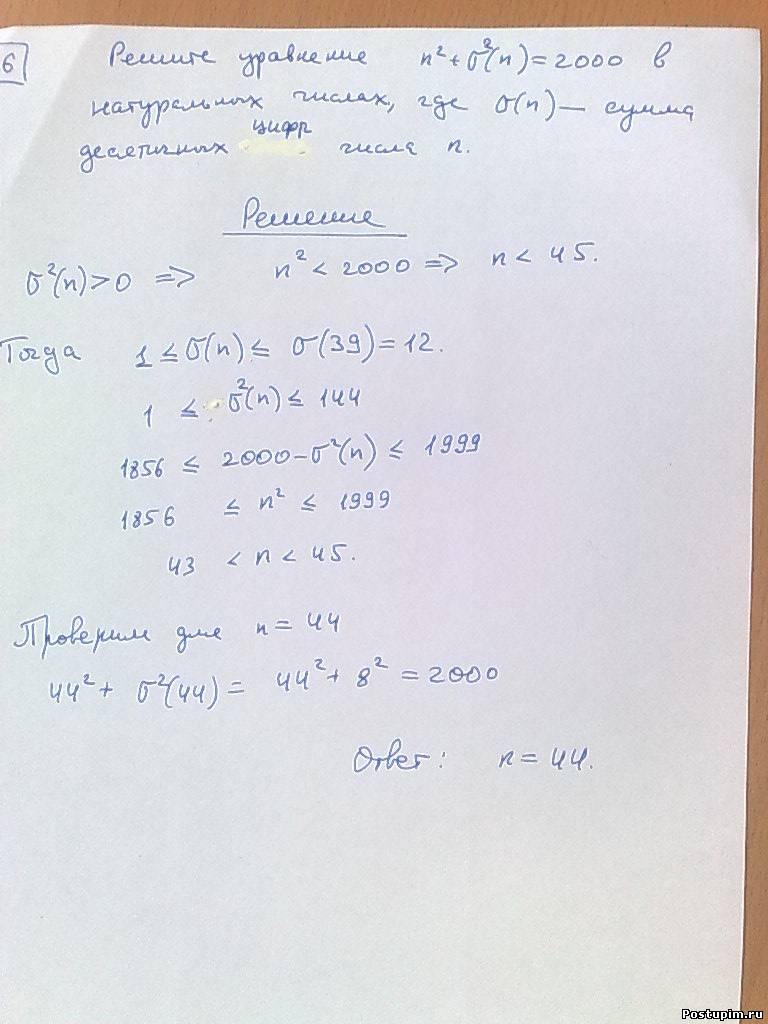 6
Решите уравнение n² + σ²(n) = 2000 в
натуральных числах, где σ(n) — сумма
десятичных цифр числа n.
Решение
σ²(n) > 0 => n² < 2000 => n < 45.
Тогда 1 ≤ σ(n) ≤ σ(39) = 12.
1 ≤ σ²(n) ≤ 144
1856 ≤ 2000 − σ²(n) ≤ 1999
1856 ≤ n² ≤ 1999
43 < n < 45.
Проверим для n = 44
44² + σ²(44) = 44² + 8² = 2000
Ответ: n = 44.
Postupim.ru